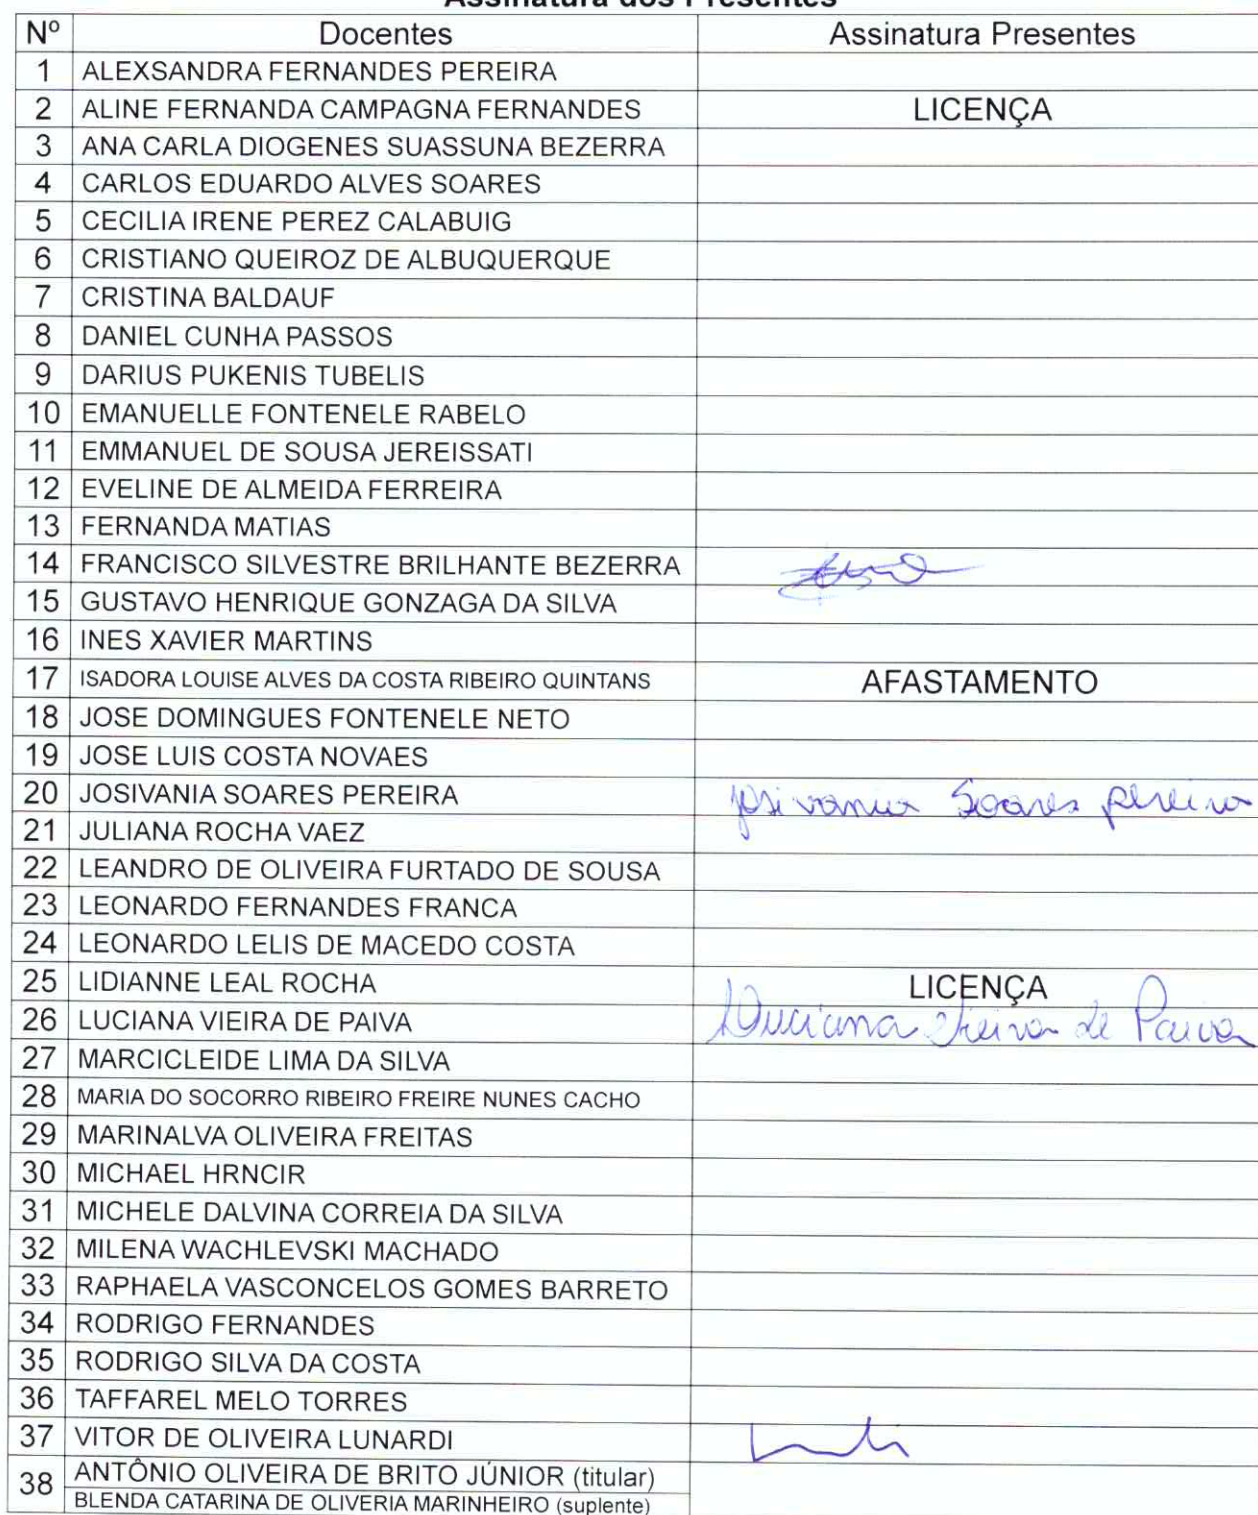 Assinatura dos Presentes
Nº Docentes Assinatura Presentes
1 ALEXSANDRA FERNANDES PEREIRA
2 ALINE FERNANDA CAMPAGNA FERNANDES LICENÇA
3 ANA CARLA DIOGENES SUASSUNA BEZERRA
4 CARLOS EDUARDO ALVES SOARES
5 CECILIA IRENE PEREZ CALABUIG
6 CRISTIANO QUEIROZ DE ALBUQUERQUE
7 CRISTINA BALDAUF
8 DANIEL CUNHA PASSOS
9 DARIUS PUKENIS TUBELIS
10 EMANUELLE FONTENELE RABELO
11 EMMANUEL DE SOUSA JEREISSATI
12 EVELINE DE ALMEIDA FERREIRA
13 FERNANDA MATIAS
14 FRANCISCO SILVESTRE BRILHANTE BEZERRA
15 GUSTAVO HENRIQUE GONZAGA DA SILVA
16 INES XAVIER MARTINS
17 ISADORA LOUISE ALVES DA COSTA RIBEIRO QUINTANS AFASTAMENTO
18 JOSE DOMINGUES FONTENELE NETO
19 JOSE LUIS COSTA NOVAES
20 JOSIVANIA SOARES PEREIRA Josivania Soares Pereira
21 JULIANA ROCHA VAEZ
22 LEANDRO DE OLIVEIRA FURTADO DE SOUSA
23 LEONARDO FERNANDES FRANCA
24 LEONARDO LELIS DE MACEDO COSTA
25 LIDIANNE LEAL ROCHA LICENÇA
26 LUCIANA VIEIRA DE PAIVA Luciana Vieira de Paiva
27 MARCICLEIDE LIMA DA SILVA
28 MARIA DO SOCORRO RIBEIRO FREIRE NUNES CACHO
29 MARINALVA OLIVEIRA FREITAS
30 MICHAEL HRNCIR
31 MICHELE DALVINA CORREIA DA SILVA
32 MILENA WACHLEVSKI MACHADO
33 RAPHAELA VASCONCELOS GOMES BARRETO
34 RODRIGO FERNANDES
35 RODRIGO SILVA DA COSTA
36 TAFFAREL MELO TORRES
37 VITOR DE OLIVEIRA LUNARDI
38 ANTÔNIO OLIVEIRA DE BRITO JÚNIOR (titular)
BLENDA CATARINA DE OLIVERIA MARINHEIRO (suplente)